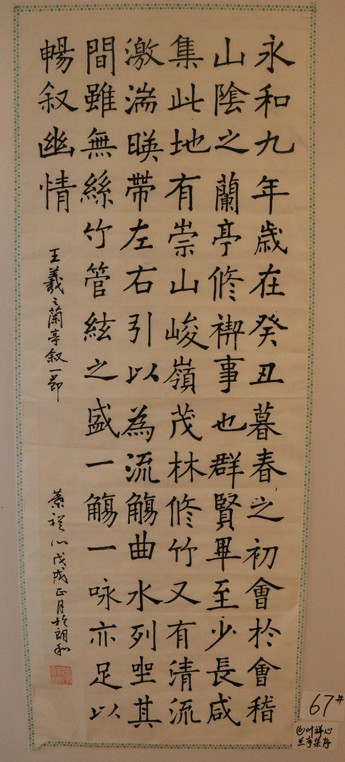 永和九年歲在癸丑暮春之初會於會稽
山陰之蘭亭修禊事也群賢畢至少長咸
集此地有崇山峻嶺茂林修竹又有清流
激湍暎帶左右引以為流觴曲水列坐其
間雖無絲竹管絃之盛一觴一咏亦足以
暢叙幽情
王羲之蘭亭叙一節
葉祥心戊戌正月於
67#
叶祥心
兰亭集序